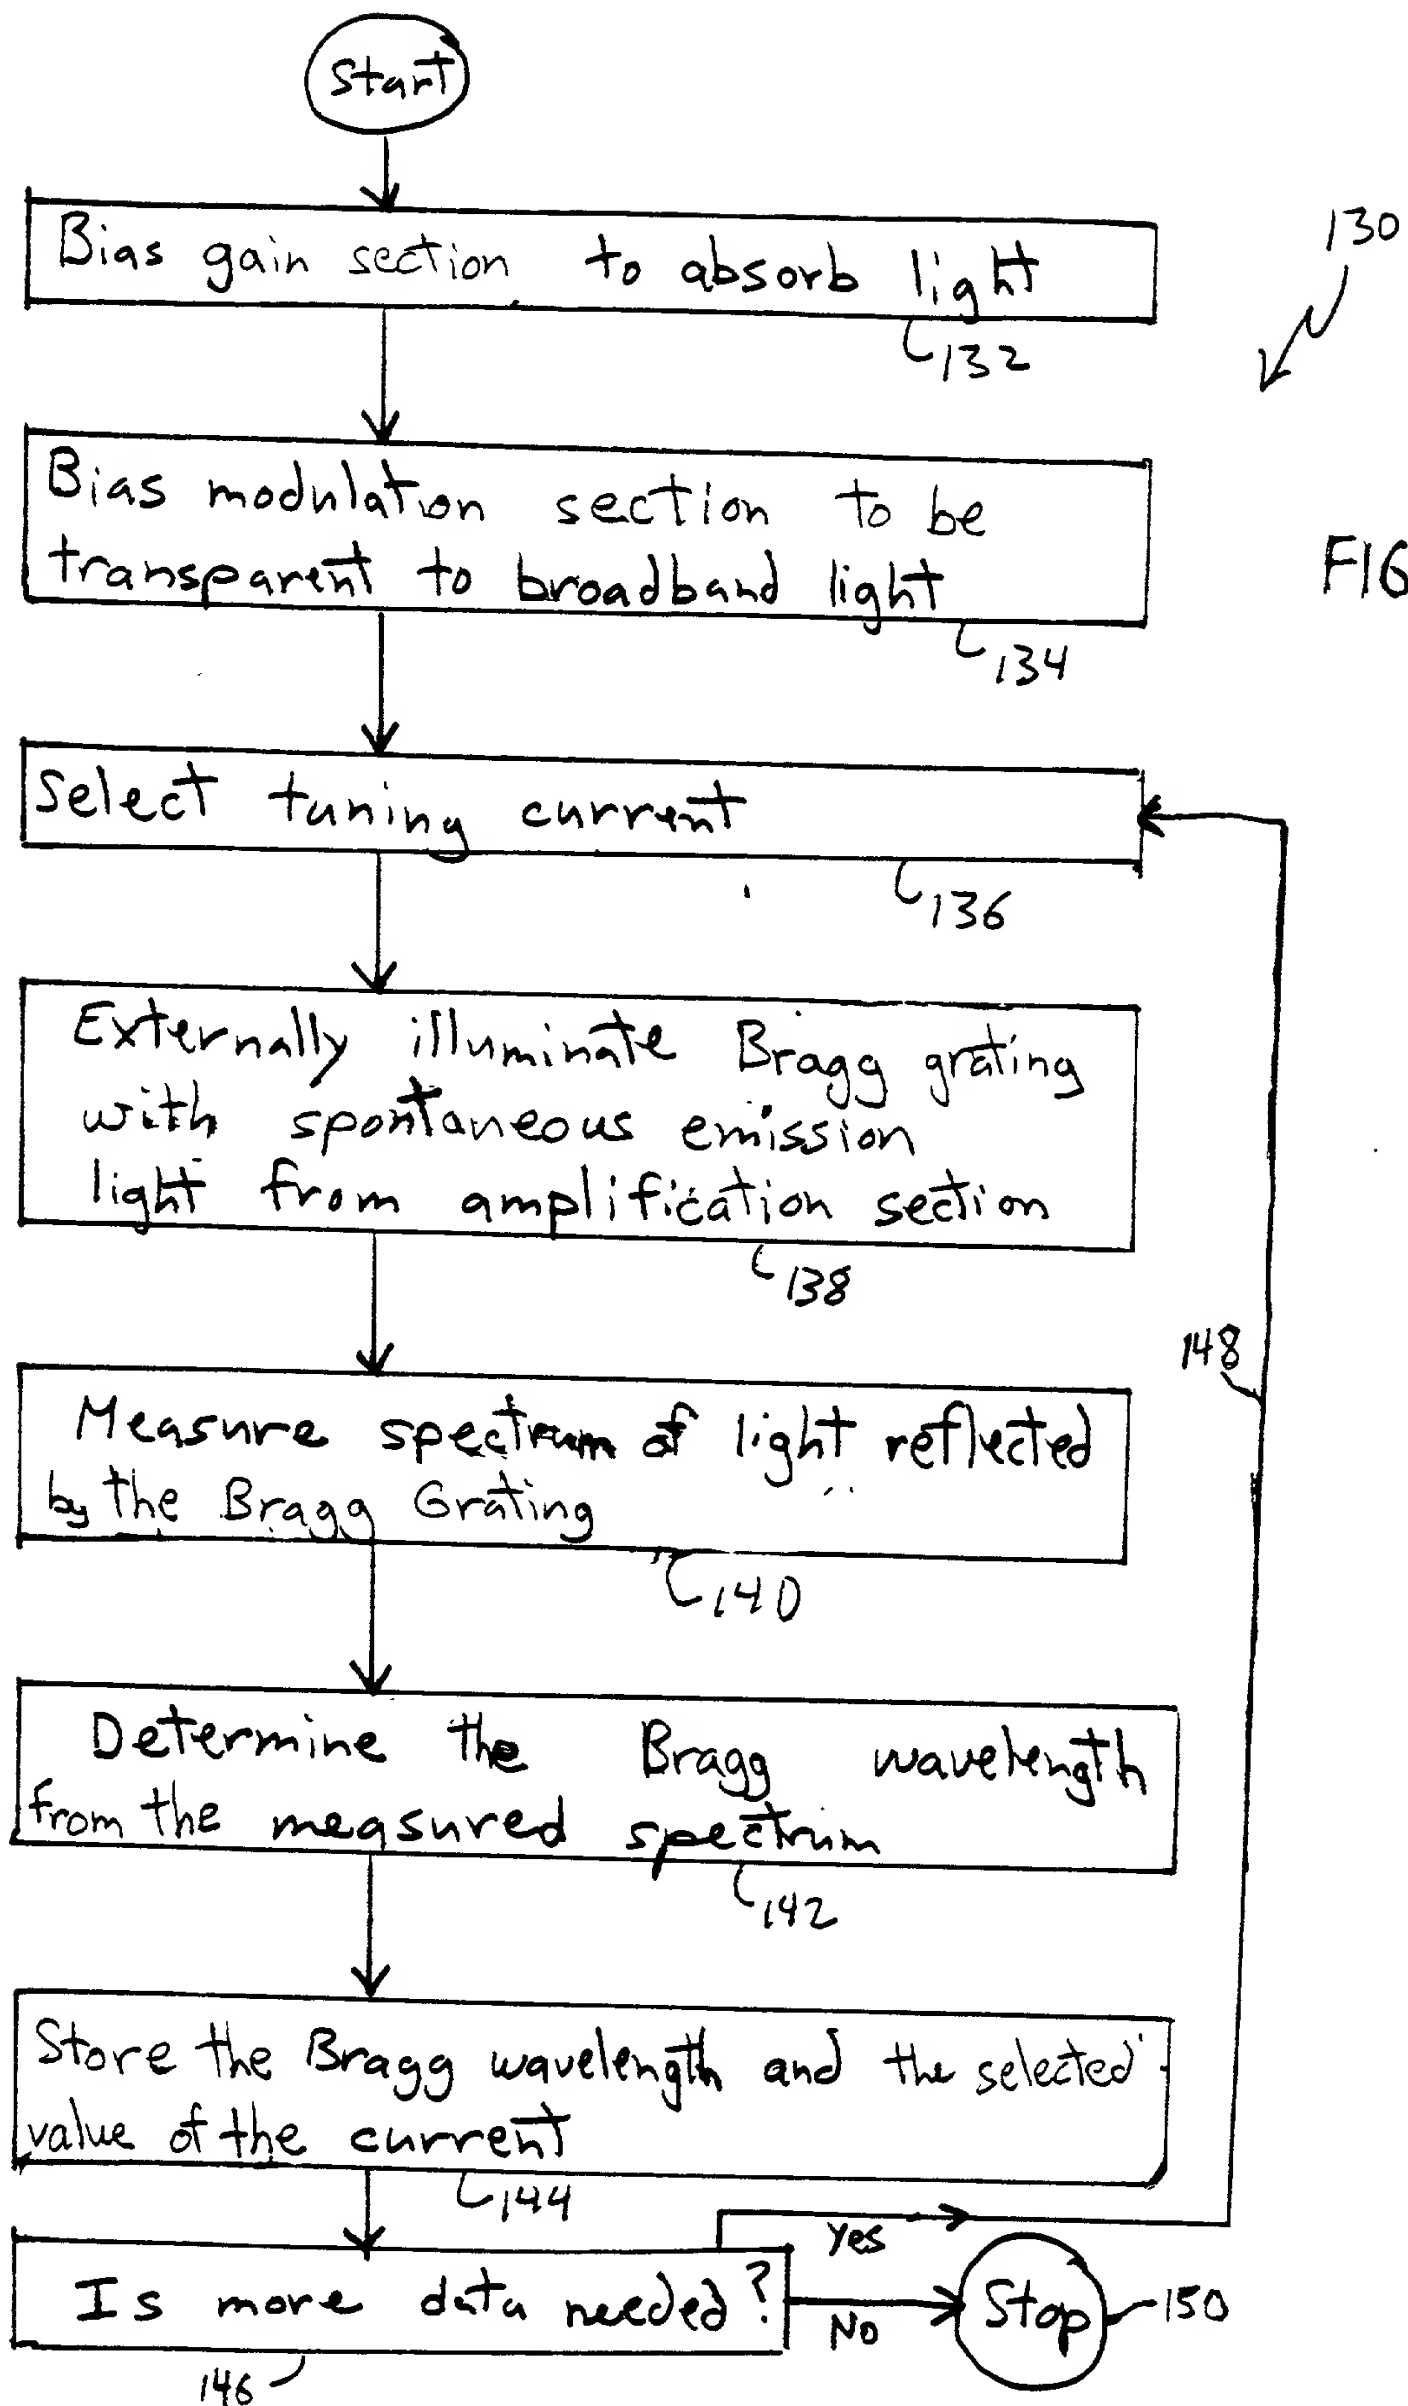 Start
Bias gain section to absorb light
132
130
Bias modulation section to be
transparent to broadband light
134
FIG
Select tuning current
136
Externally illuminate Bragg grating
with spontaneous emission
light from amplification section
138
148
Measure spectrum of light reflected
by the Bragg Grating
140
Determine the Bragg wavelength
from the measured spectrum
142
Store the Bragg wavelength and the selected
value of the current
144
Yes
Is more data needed?
No
Stop
150
146